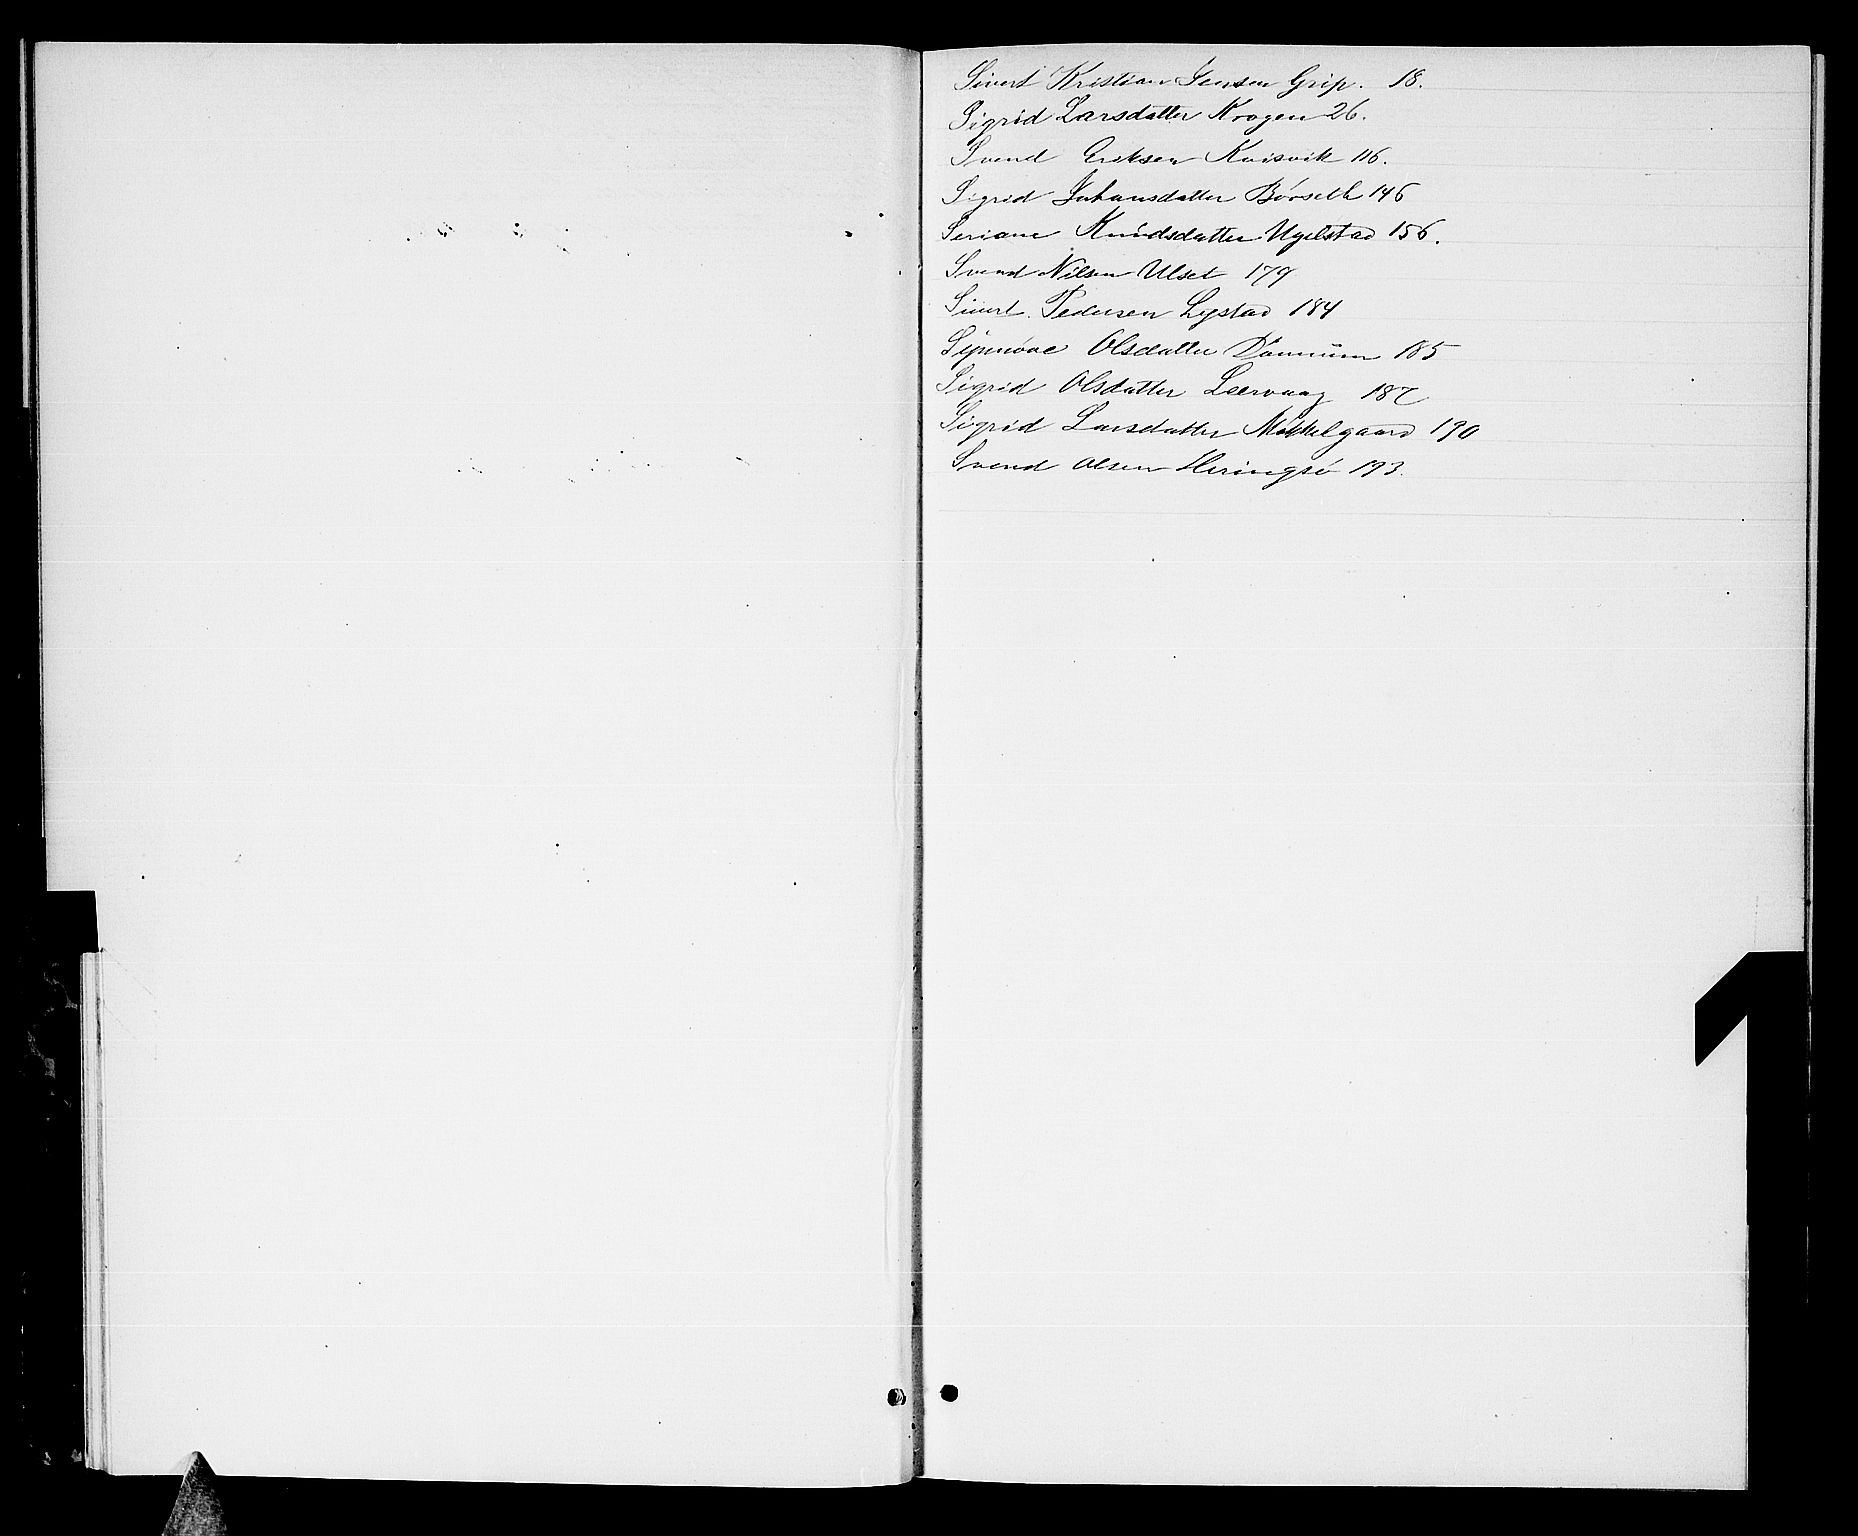 Sivert Kristian Jensen Grip. 18.
Sigrid Larsdatter Krogen 26.
Svend Eriksen Kvisvik 116.
Sigrid Johansdatter Börseth 146
Seriane Knudsdatter Ugelstad 156.
Svend Nilsen Ulset 179
Sivert Pedersen Lystad 184
Olsdatter 185
Sigrid Olsdatter Leervaag 187
Sigrid Larsdatter Mekkelgaard 190
Svend Olsen Heringsö 193.